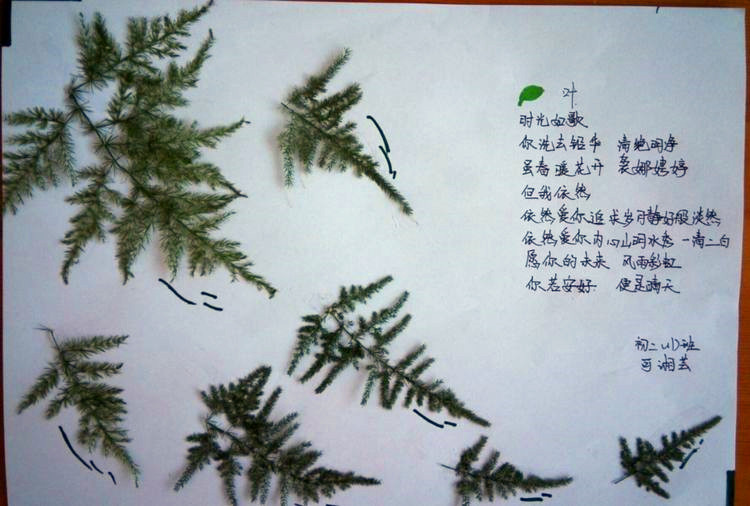 叶
时光如歌
你洗去铅华 清绝明净
虽春暖花开 袅娜娉婷
但我依然
依然爱你追求岁月静好般淡然
依然爱你内心山明水秀 一清二白
愿你的未来 风雨彩虹
你若安好 便是晴天
初二
湘芸